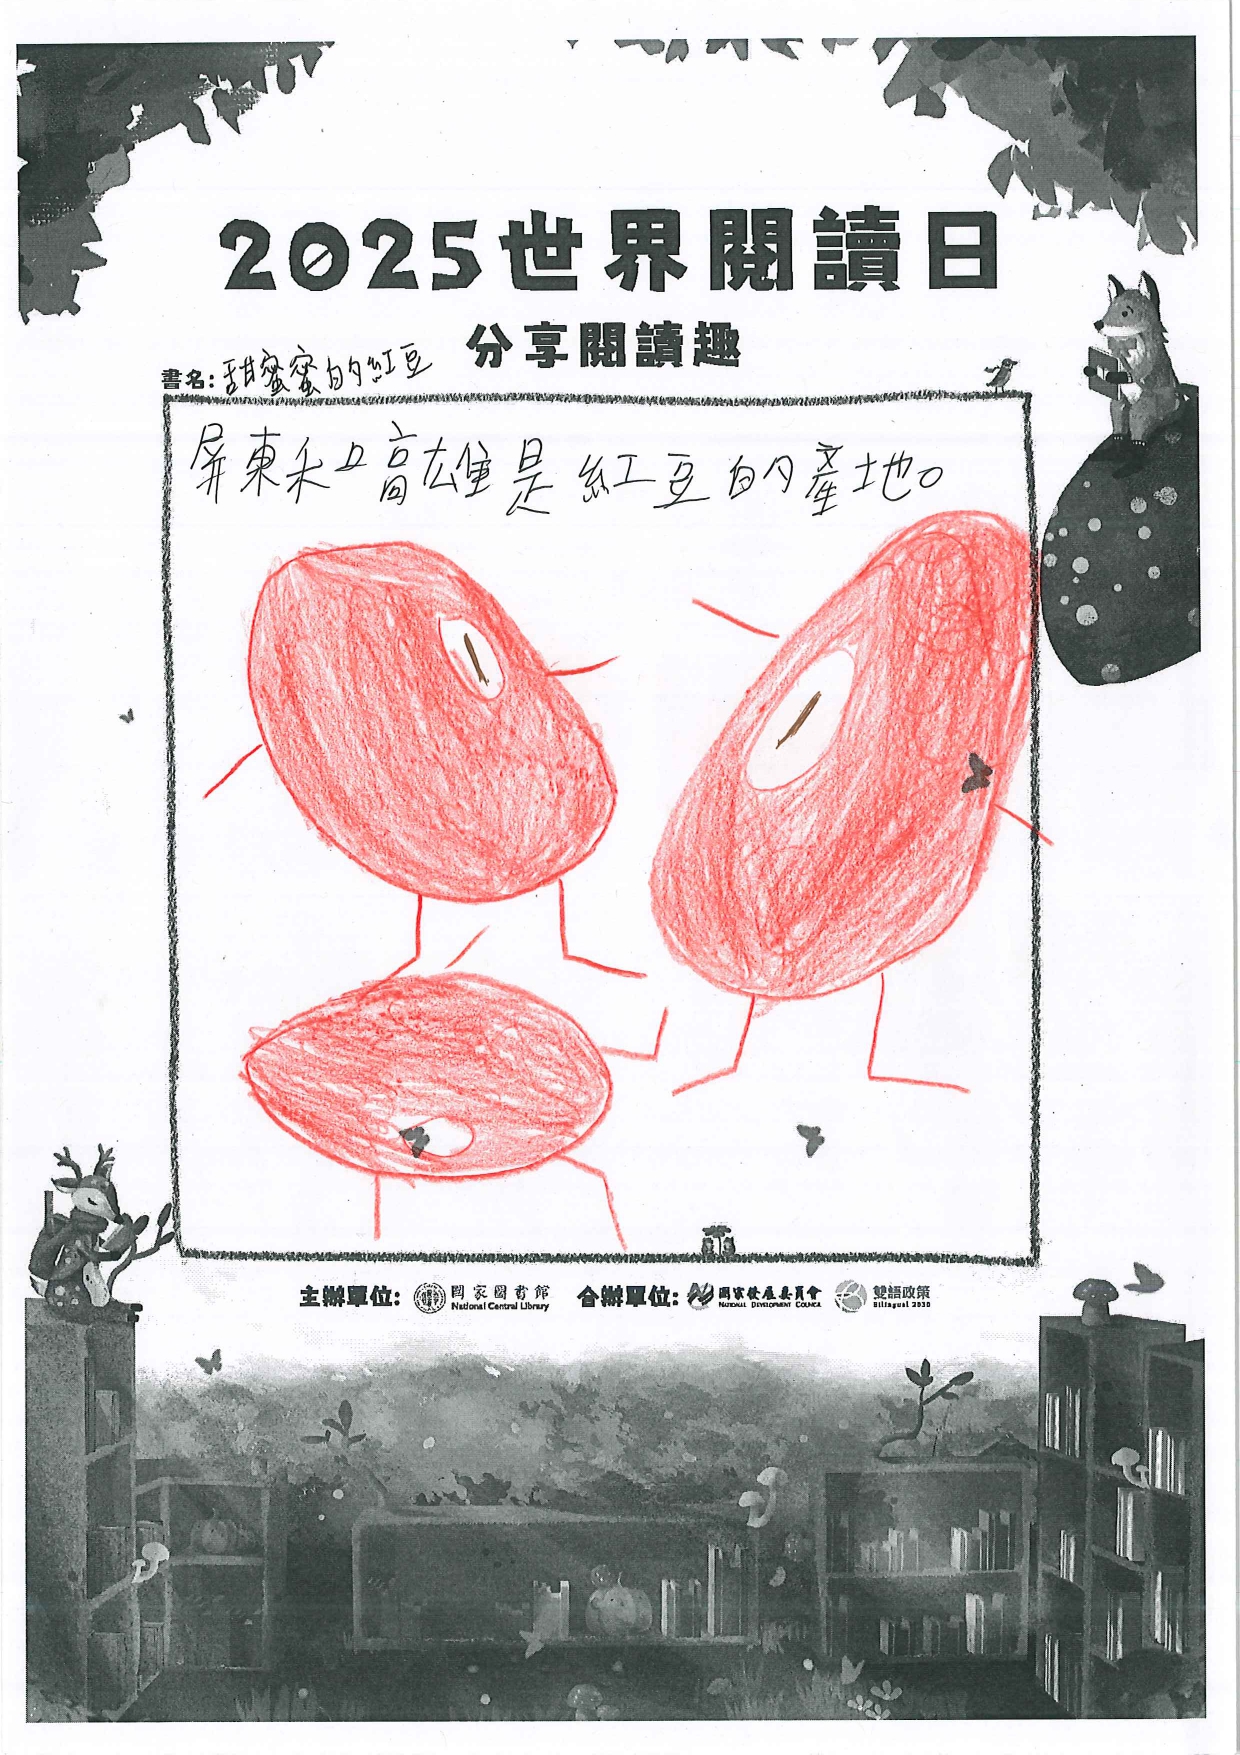 2025世界閱讀日
分享閱讀趣
書名:甜蜜蜜的紅豆
屏東和高雄是紅豆的產地。
主辦單位: 國家圖書館 National Central Library 合辦單位: 國家發展委員會 NATIONAL DEVELOPMENT COUNCIL 雙語政策 Bilingual 2030